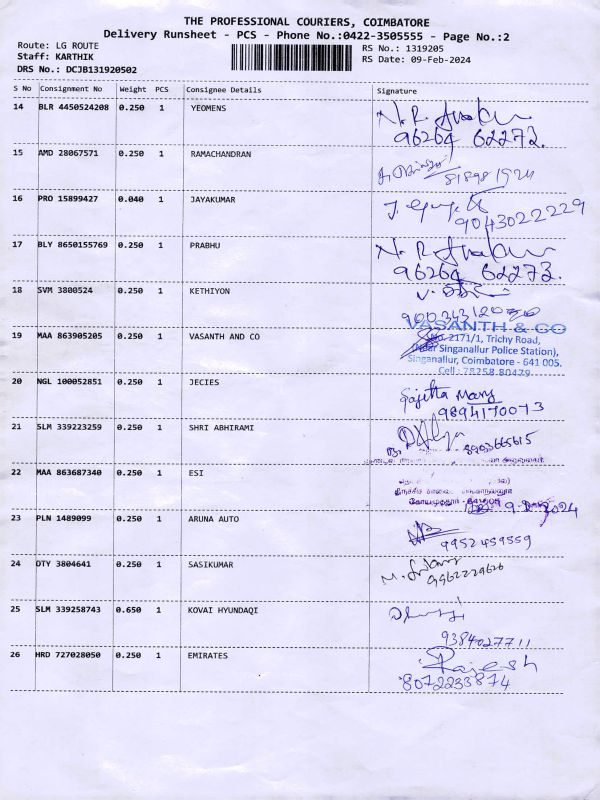 THE PROFESSIONAL COURIERS, COIMBATORE
Delivery Runsheet - PCS - Phone No.:0422-3505555 - Page No.:2
Route: LG ROUTE
RS No.: 1319205
Staff: KARTHIK
RS Date: 09-Feb-2024
DRS No.: DCJB131920502
S No Consignment No Weight PCS Consignee Details Signature
14 BLR 4450524208 0.250 1 YEOMENS
96264 62273.
15 AMD 28067571 0.250 1 RAMACHANDRAN
16 PRO 15899427 0.040 1 JAYAKUMAR
9043022229
17 BLY 8650155769 0.250 1 PRABHU
96264 62273.
18 SVM 3800524 0.250 1 KETHIYON
19 MAA 863905205 0.250 1 VASANTH AND CO
VASANTH & CO
No. 2171/1, Trichy Road,
Singanallur Police Station),
Singanallur, Coimbatore - 641 005.
Cell : 78258 80429
20 NGL 100052851 0.250 1 JECIES
Sajitta Mary
9894170073
21 SLM 339223259 0.250 1 SHRI ABHIRAMI
8903665615
22 MAA 863687340 0.250 1 ESI
23 PLN 1489099 0.250 1 ARUNA AUTO
9952459559
24 OTY 3804641 0.250 1 SASIKUMAR
9962229626
25 SLM 339258743 0.650 1 KOVAI HYUNDAQI
9384027711
26 HRD 727028050 0.250 1 EMIRATES
Rajesh
8072233874